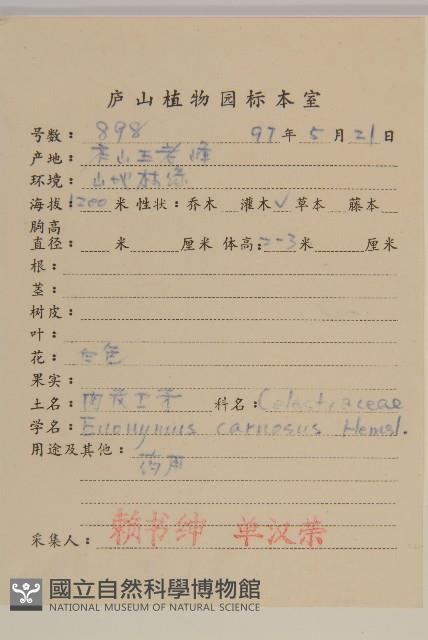 庐山植物园标本室
号数： 898 97年 5月 21日
产地： 庐山五老峰
环境： 山地林缘
海拔：1200 米 性状：乔木 灌木✓草本 藤本
胸高
直径： 米 厘米 体高：2-3米 厘米
根：
茎：
树皮：
叶：
花： 白色
果实：
土名： 肉花卫矛 科名：Celastraceae
学名： Euonymus carnosus Hemsl.
用途及其他： 药用
采集人： 赖书绅 单汉荣
國立自然科學博物館
NATIONAL MUSEUM OF NATURAL SCIENCE